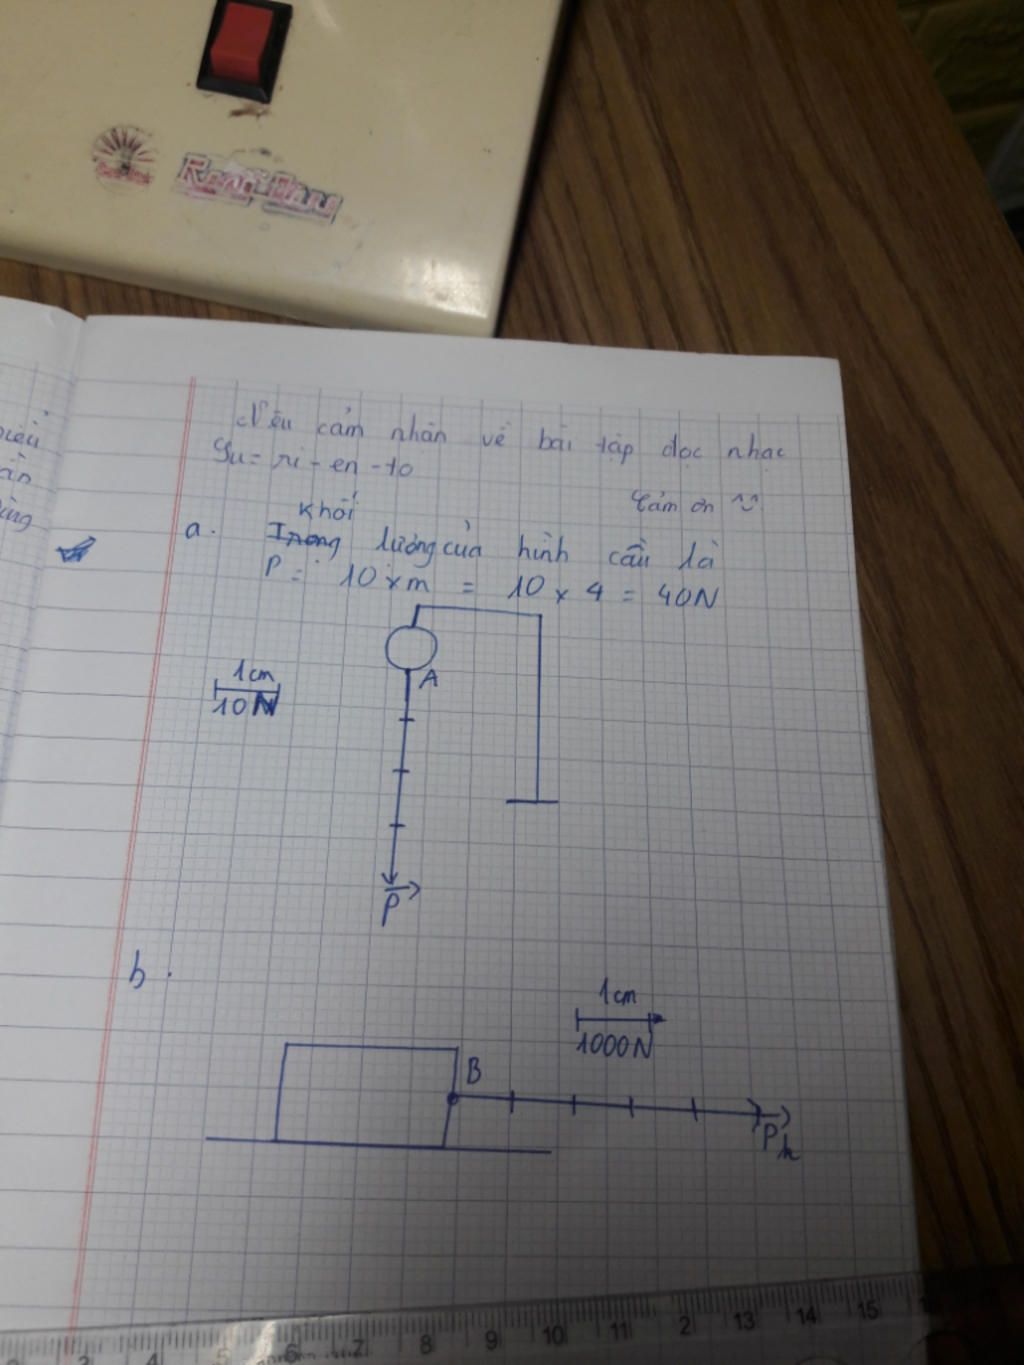 Rạng Đông
Nêu cảm nhận về bài tập đọc nhạc
Yu-ri-en-to
Cảm ơn
Khối
a. Trọng lượng của hình cầu là
P = 10 x m = 10 x 4 = 40N
1cm
10N
A
P
b.
1cm
1000N
B
Pk
3 4 5 6 7 8 9 10 11 2 13 14 15